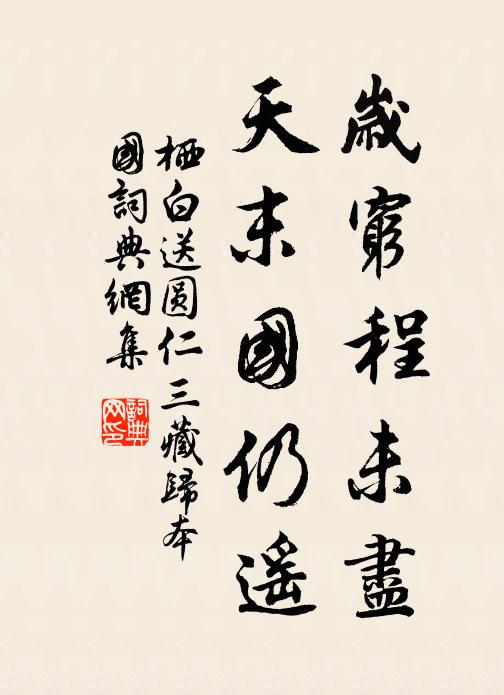 歲窮程未盡
天末國仍遙
栖白送圓仁三藏歸本
國詞典網集
詞典
网印